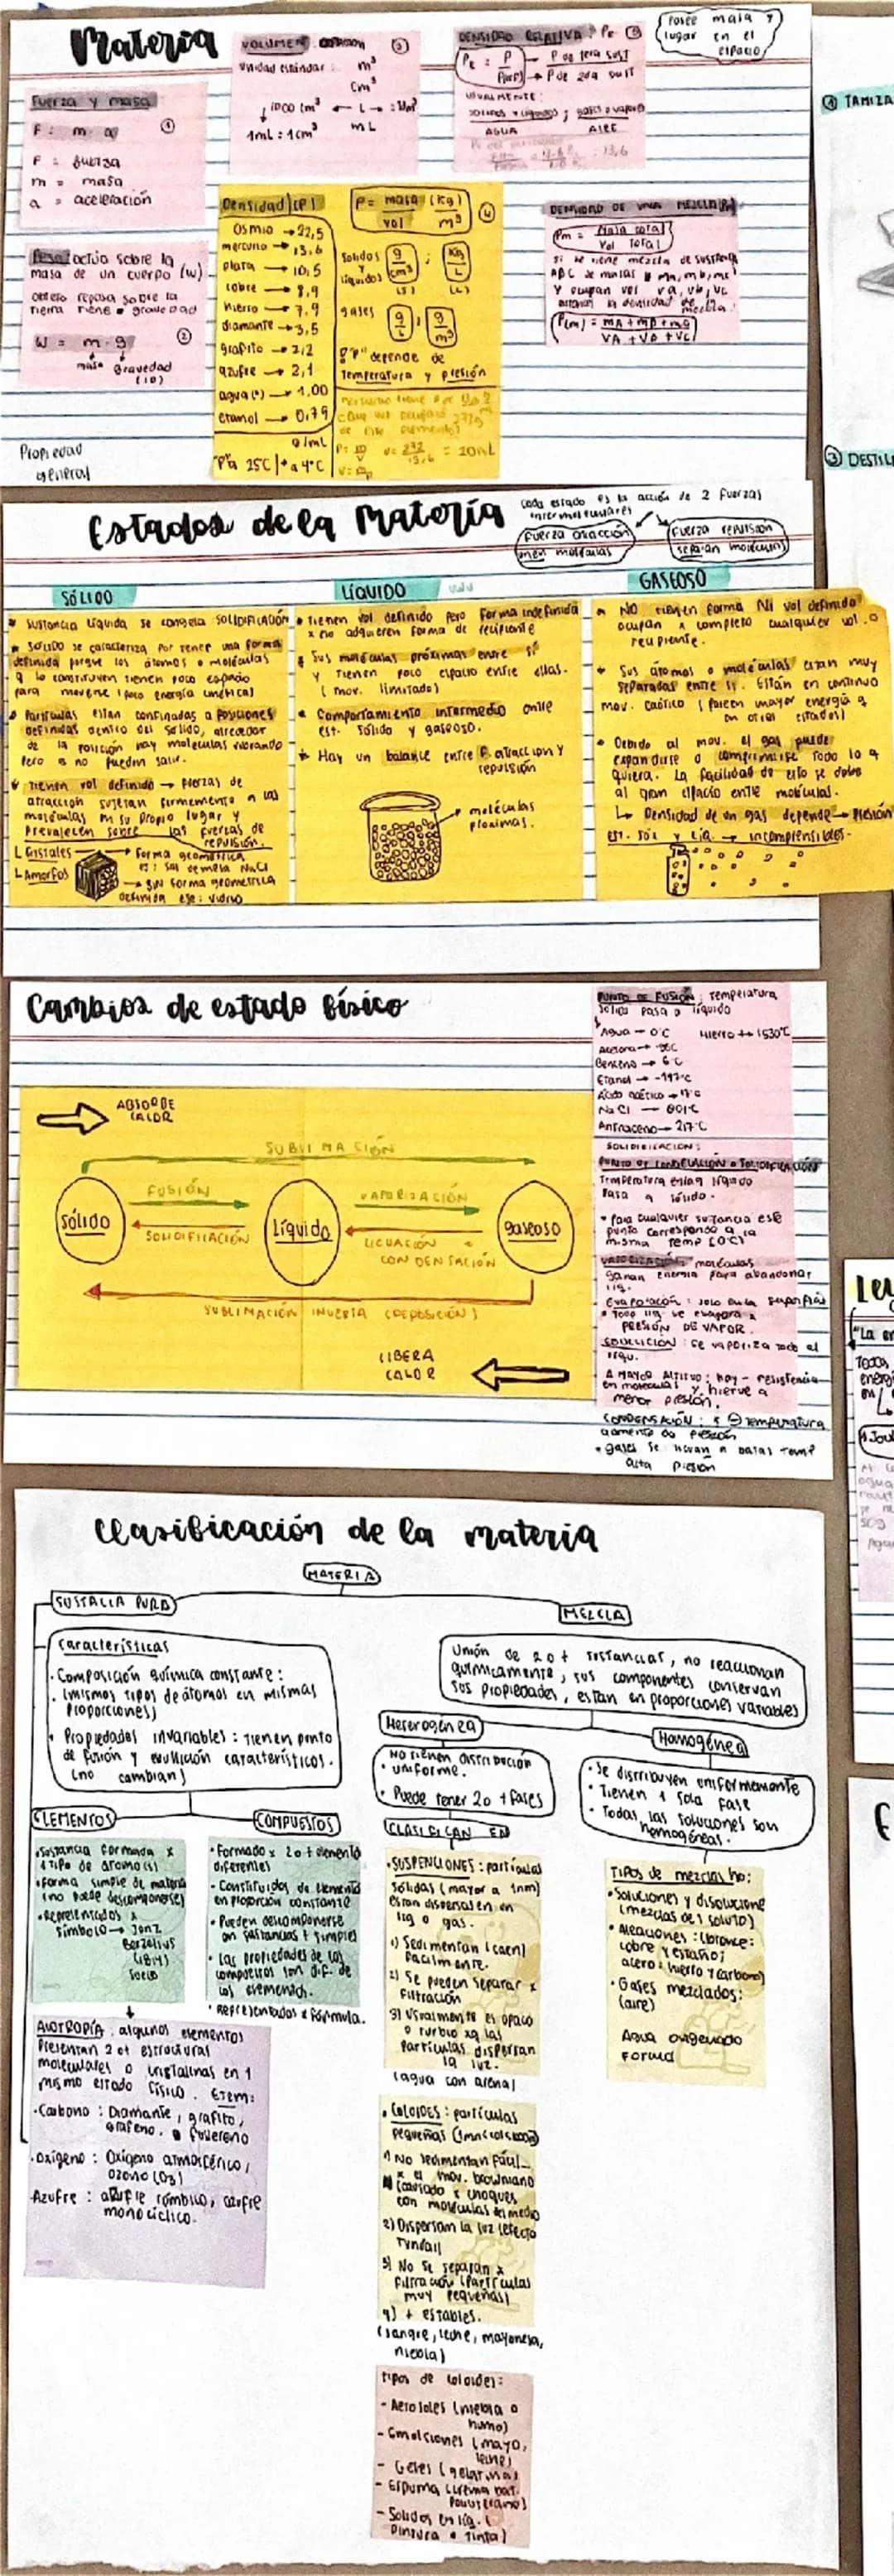 Materia
Posee masa y
lugar en el
espacio
Fuerza y masa
①
F = m · a
F = fuerza
m = masa
a = aceleración
Peso: actúa sobre la
masa de un cuerpo (w)
objeto reposa sobre la
tierra tiene gravedad
W = m · g ②
masa gravedad
(10)
Propiedad
general
VOLUMEN ③
Unidad estándar: m³
cm³
1000 cm³ ← L
1mL = 1cm³ mL
Densidad (P)
Osmio → 22,5
mercurio → 13,6
plata → 10,5
cobre → 8,9
hierro → 7,9
diamante → 3,5
grafito → 2,2
azufre → 2,1
agua (*) → 1,00
etanol → 0,79
g/mL
P a 25°C | * a 4°C
P = masa (kg)
vol m³
④
Sólidos
y
líquidos
g
cm³
kg
L
gases
g
L
g
m³
"P" depende de
Temperatura y presión
= 20 mL
DENSIDAD RELATIVA: Pr ⑤
USUALMENTE:
SÓLIDOS Y LÍQUIDOS ; gases o vapores
AGUA AIRE
DENSIDAD DE UNA MEZCLA
Pm = Masa total
Vol Total
Estados de la Materia
cada estado es la acción de 2 Fuerzas
intermoleculares
Fuerza atracción
unen moléculas
Fuerza repulsión
separan moléculas
SÓLIDO
* Sustancia líquida se congela SOLIDIFICACIÓN
* Sólido se caracteriza por tener una forma
definida porque los átomos o moléculas
q lo constituyen tienen poco espacio
para moverse (poca energía cinética)
* Partículas están confinadas a posiciones
definidas dentro del sólido, alrededor
de la posición hay moléculas vibrando
pero no pueden salir.
* Tienen vol definido → Fuerzas de
atracción sujetan firmemente a las
moléculas en su propio lugar y
Prevalecen sobre las fuerzas de
repulsión.
L Cristales → Forma geométrica
ej: sal de mesa NaCl
L Amorfos → Sin forma geométrica
definida eje: vidrio
LÍQUIDO
* Tienen vol definido pero forma indefinida
x no adquieren forma de recipiente
* Sus moléculas próximas entre sí
y tienen poco espacio entre ellas.
( mov. limitado)
* Comportamiento intermedio entre
est. sólido y gaseoso.
* Hay un balance entre F. atracción y
repulsión
moléculas
próximas.
GASEOSO
* NO tienen forma NI vol definido
ocupan x completo cualquier vol. o
recipiente.
* Sus átomos o moléculas están muy
separadas entre si. Están en continuo
mov. caótico (Poseen mayor energía q
en otros estados)
* Debido al mov. el gas puede
expandirse o comprimirse todo lo q
quiera. La facilidad de esto se debe
al gran espacio entre moléculas.
↳ Densidad de un gas depende → Presión
est. sól y líq. → incomprensibles.
Cambios de estado físico
ABSORBE
CALOR
SUBLIMACIÓN
FUSIÓN
VAPORIZACIÓN
Sólido
Líquido
gaseoso
SOLIDIFICACIÓN
LICUACIÓN -
CONDENSACIÓN
SUBLIMACIÓN INVERSA (DEPOSICIÓN)
LIBERA
CALOR
PUNTO DE FUSIÓN: temperatura
sólido pasa a líquido
Agua → 0°C Hierro → 1530°C
Benceno → 6°C
Etanol → -117°C
Ácido acético → 17°C
NaCl → 801°C
Antraceno → 217°C
SOLIDIFICACIÓN:
PUNTO DE CONGELACIÓN o SOLIDIFICACIÓN
Temperatura en la q líquido
pasa a sólido.
• Para cualquier sustancia este
punto corresponde a la
misma temp (0°C)
VAPORIZACIÓN: moléculas
ganan energía para abandonar
líq.
Evaporación: solo en la superficie
• Todo líq se evapora x
PRESIÓN DE VAPOR.
EBULLICIÓN: Se vaporiza todo el
líqu.
A MAYOR ALTITUD: hay - resistencia
en moléculas y hierve a
menor presión.
CONDENSACIÓN: x ⊖ temperatura
aumento de presión
• gases se llevan a bajas temp
alta presión
Clasificación de la materia
MATERIA
SUSTANCIA PURA
MEZCLA
Características
• Composición química constante:
(mismos tipos de átomos en mismas
proporciones)
• Propiedades invariables: tienen punto
de fusión y ebullición característicos.
(no cambian)
Unión de 2 o + sustancias, no reaccionan
químicamente, sus componentes conservan
sus propiedades, están en proporciones variables
Heterogénea
Homogénea
NO tienen distribución
uniforme.
• Puede tener 2 o + fases
• Se distribuyen uniformemente
• Tienen 1 sola fase
• Todas las soluciones son
homogéneas.
ELEMENTOS
COMPUESTOS
CLASIFICAN EN
• Sustancia formada x
1 tipo de átomo(s)
• Forma simple de materia
(no puede descomponerse)
• Representados x
símbolo → Jonz
Berzelius
(1814)
Sueco
• Formado x 2 o + elementos
diferentes
• Constituidos de elementos
en proporción constante
• Pueden descomponerse
en sustancias + simples
• Las propiedades de los
compuestos son dif. de
los elementos.
• Representados x fórmula.
ALOTROPÍA: algunos elementos
presentan 2 o + estructuras
moleculares o cristalinas en 1
mismo estado físico. Ejem:
• Carbono: Diamante, grafito,
grafeno, fulereno
• Oxígeno: Oxígeno atmosférico,
ozono (O3)
• Azufre: azufre rómbico, azufre
monocíclico.
• SUSPENCIONES: partículas
sólidas (mayor a 1nm)
están dispersas en
líq o gas.
1) Sedimentan (caen)
facilmente.
2) Se pueden separar x
filtración
3) Usualmente es opaco
o turbio xq las
partículas dispersan
la luz.
(agua con arena)
• COLOIDES: partículas
pequeñas
1) No sedimentan fácil
x el mov. browniano
(causado x choques
con moléculas del medio
2) Dispersan la luz (efecto
Tyndall
3) No se separan x
filtración (Partículas
muy pequeñas)
4) + estables.
(sangre, leche, mayonesa,
niebla)
Tipos de coloides:
- Aerosoles (niebla o
humo)
- Emulsiones (mayo,
leche)
- Geles (gelatina)
- Espuma (crema bat.
- Solidos en líq. (
Pintura o tinta)
TIPOS de mezclas ho:
• Soluciones y disolucione
(mezclas de 1 soluto)
• Aleaciones: (bronce:
cobre y estaño;
acero: hierro y carbono)
• Gases mezclados:
(aire)
Agua oxigenada
④ TAMIZA
③ DESTIL
"La en